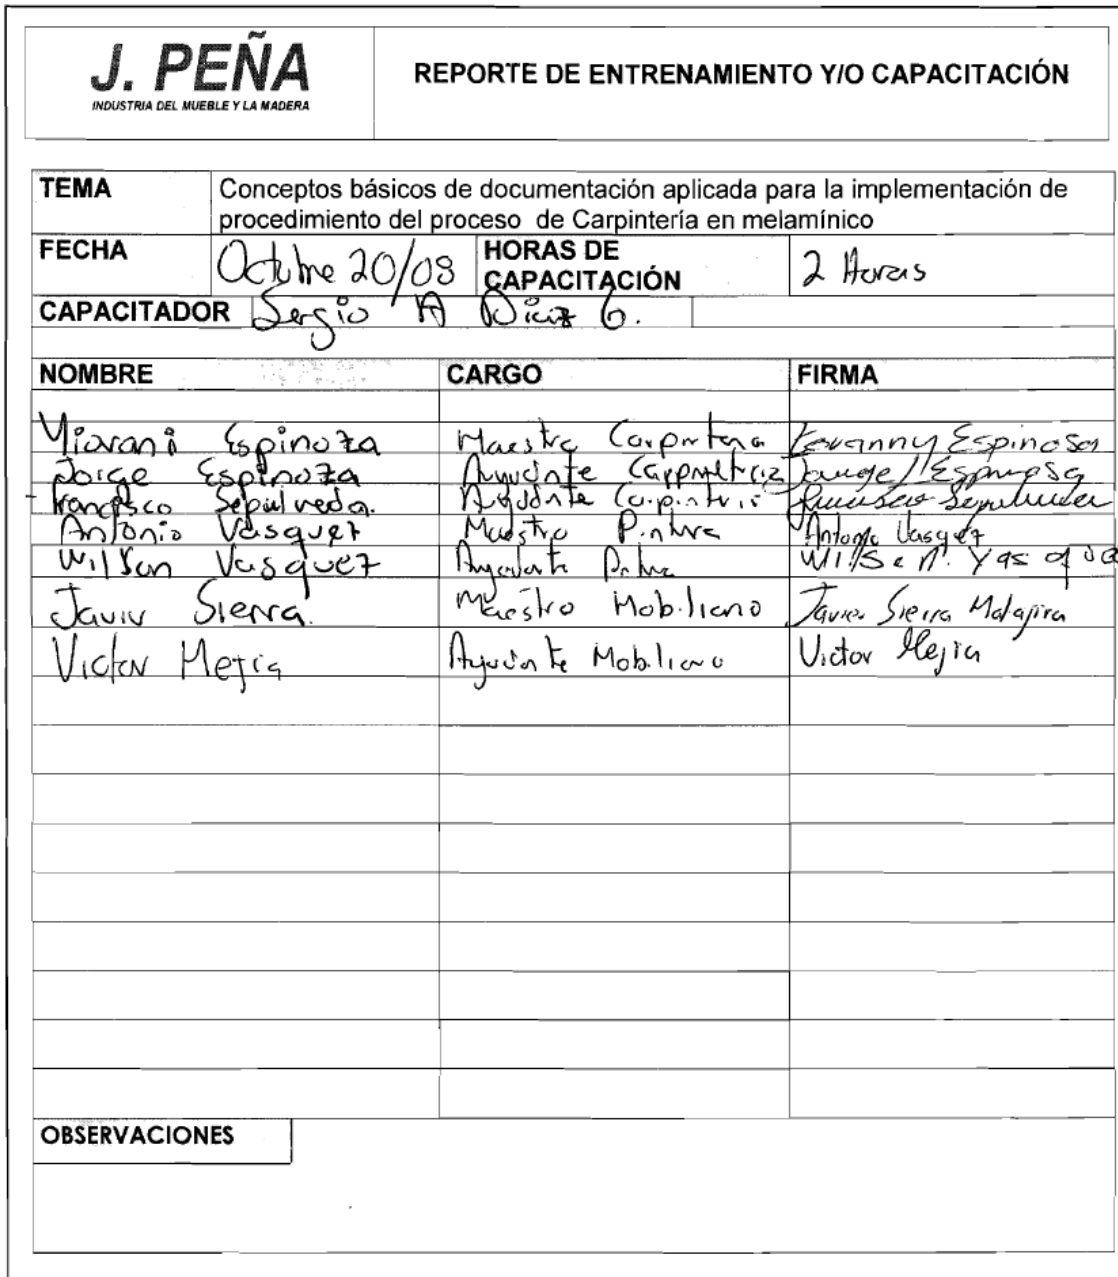 J. PEÑA
INDUSTRIA DEL MUEBLE Y LA MADERA
REPORTE DE ENTRENAMIENTO Y/O CAPACITACIÓN
TEMA Conceptos básicos de documentación aplicada para la implementación de
procedimiento del proceso de Carpintería en melamínico
FECHA Octubre 20/08 HORAS DE CAPACITACIÓN 2 Horas
CAPACITADOR Sergio A Diaz G.
NOMBRE CARGO FIRMA
Espinoza Maestro Espinosa
Jorge Espinoza Ayudante Espinosa
Francisco Sepulveda. Ayudante
Antonio Vasquez Maestro Pintura Antonio Vasquez
Wilson Vasquez Ayudante
Javier Sierra. Maestro Mobiliario Javier Sierra
Victor Mejia Ayudante Mobiliario Victor Mejia
OBSERVACIONES